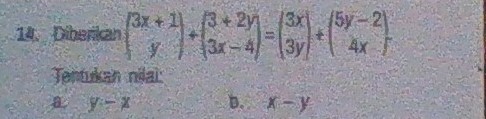 14. Diberikan (3x + 1 / y) + (3 + 2y / 3x − 4) = (3x / 3y) + (5y − 2 / 4x).
Tentukan nilai:
a. y − x b. x − y